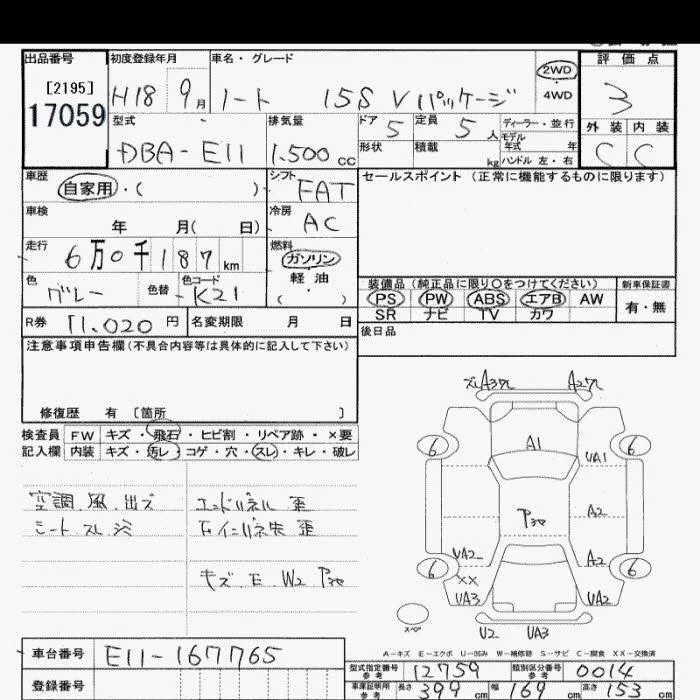 出品番号
[2195]
17059
初度登録年月
H18 9月
車名・グレード
ノート 15S Vパッケージ
2WD
・
4WD
評価点
3
外装 内装
C C
型式
DBA-E11
排気量
1.500 cc
ドア
5
定員
5人
ディーラー・並行
モデル
年式 年
形状
積載
kg
ハンドル 左・右
車歴
自家用・( )
シフト
FAT
セールスポイント (正常に機能するものに限ります)
車検
年 月( 日)
冷房
AC
走行
6万0千187km
燃料
ガソリン
・
軽油
( )
色
グレー
色替
色コード
K21
装備品(純正品に限り○をつけてください)
新車保証書
PS PW ABS エアB AW
有・無
SR ナビ TV カワ
R券 11,020 円
名変期限 月 日
後日品
注意事項申告欄(不具合内容等は具体的に記入して下さい)
修復歴 有 [箇所 ]
検査員
記入欄
FW キズ・飛石・ヒビ割・リペア跡・×要
内装 キズ・汚レ・コゲ・穴・スレ・キレ・破レ
空調 風 出ズ
シート スレ 汚
エンドパネル 歪
キズ E W2 P30
A1
6 6
UA1
P30
A2
UA2
A2
6 6
XX
UA3
UA2
スペア
U2 UA3
A-キズ E-エクボ U-凹み W-補修跡 S-サビ C-腐食 XX-交換済
車台番号 E11-167765
登録番号
型式指定番号
参考
12759
類別区分番号
参考
0014
車庫証明用
参考
長さ 399 cm
幅 169 cm
高さ 153 cm